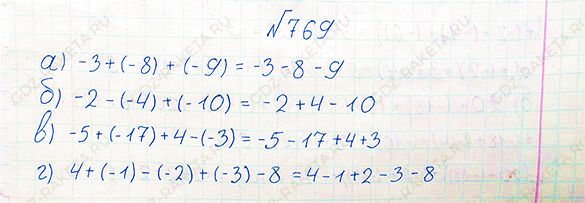 №769
а) -3+(-8)+(-9)=-3-8-9
б) -2-(-4)+(-10)=-2+4-10
в) -5+(-17)+4-(-3)=-5-17+4+3
г) 4+(-1)-(-2)+(-3)-8=4-1+2-3-8